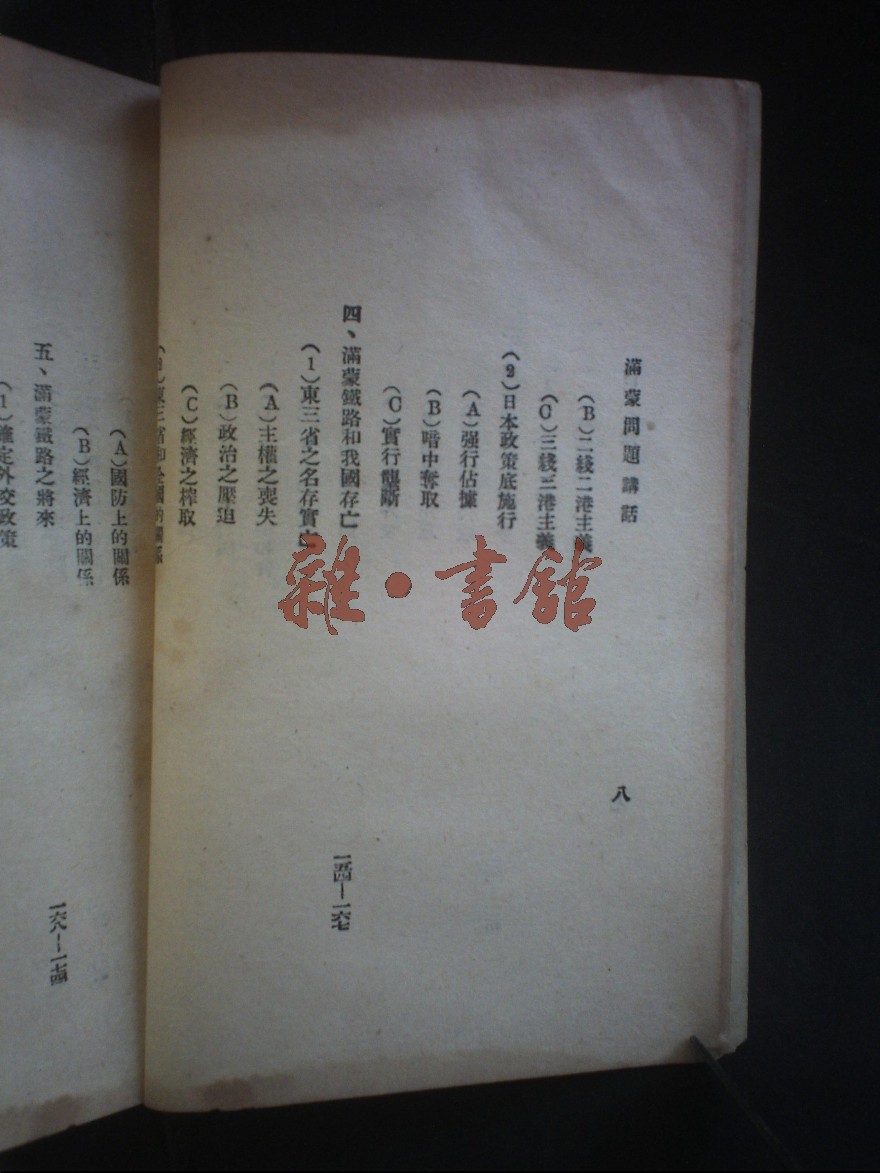 滿蒙問題講話
八
(B)二綫二港主義
(C)三綫三港主義
(2)日本政策底施行
(A)强行佔據
(B)暗中奪取
(C)實行壟斷
四、滿蒙鐵路和我國存亡
一五四—一六七
(1)東三省之名存實亡
(A)主權之喪失
(B)政治之壓迫
(C)經濟之搾取
東三省和全國的關係
(A)國防上的關係
(B)經濟上的關係
五、滿蒙鐵路之將來
一六八—一七四
(1)確定外交政策
雜·書館